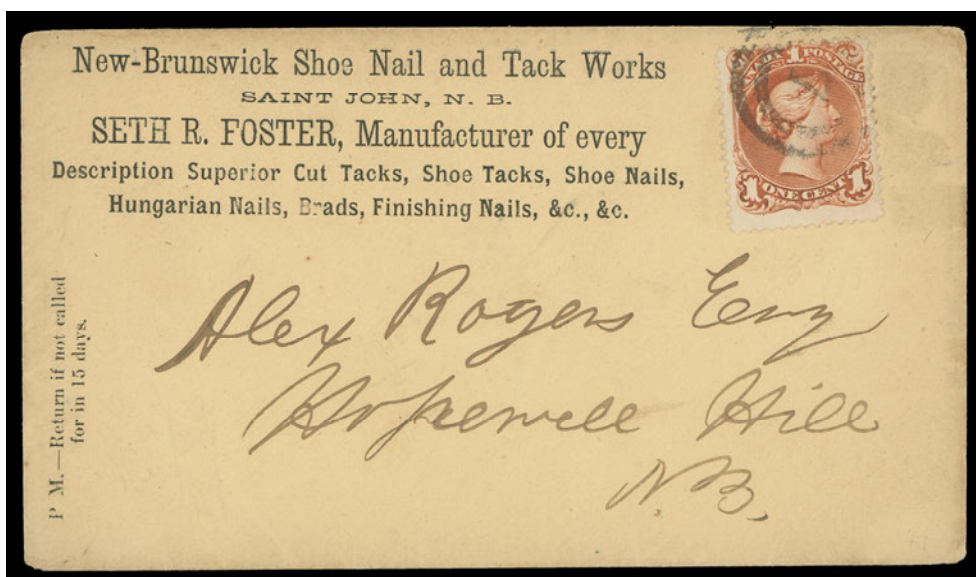 New-Brunswick Shoe Nail and Tack Works
SAINT JOHN, N. B.
SETH R. FOSTER, Manufacturer of every
Description Superior Cut Tacks, Shoe Tacks, Shoe Nails,
Hungarian Nails, Brads, Finishing Nails, &c., &c.
1
POSTAGE
1 ONE CENT 1
P M.—Return if not called
for in 15 days.
Alex Rogers Esq
Hopewell Hill
N.B.